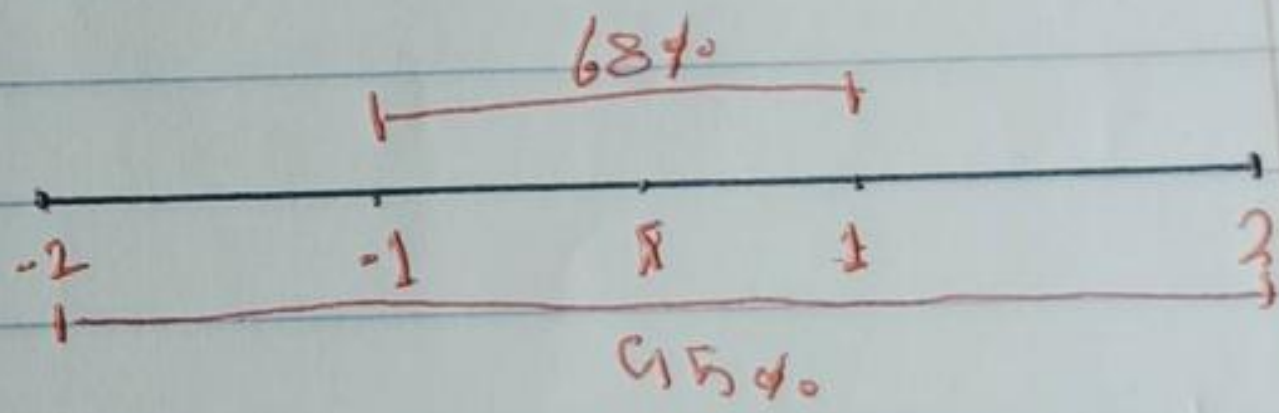 68%
-2 -1 x̄ 1 2
95%